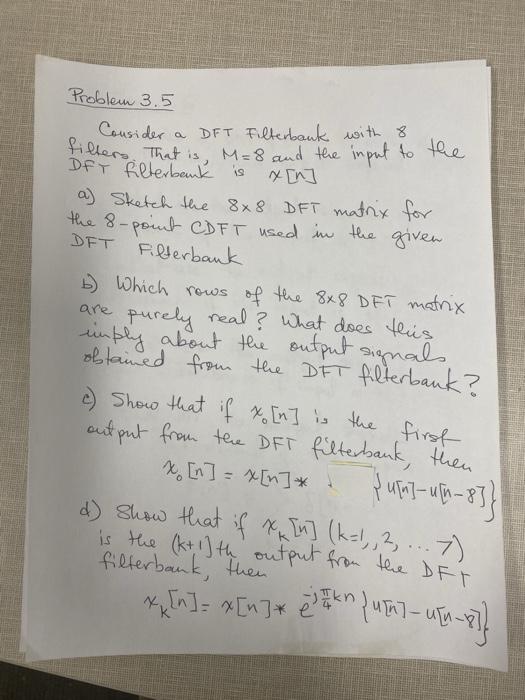 Problem 3.5
Consider a DFT Filterbank with 8
filters. That is, M=8 and the input to the
DFT filterbank is x[n]
a) Sketch the 8x8 DFT matrix for
the 8-point CDFT used in the given
DFT Filterbank
b) Which rows of the 8x8 DFT matrix
are purely real? What does this
imply about the output signals
obtained from the DFT filterbank?
c) Show that if x₀[n] is the first
output from the DFT filterbank, then
x₀[n] = x[n]* {u[n]-u[n-8]}
d) Show that if xₖ[n] (k=1,,2, ... 7)
is the (k+1)th output from the DFT
filterbank, then
xₖ[n]= x[n]* e^{-j π/4 kn} {u[n]-u[n-8]}